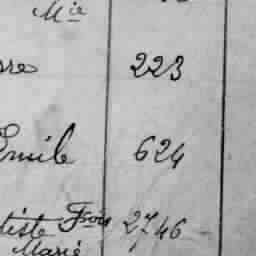 Mie
rre 223
Emile 624
tiste Frois 2746
Marie